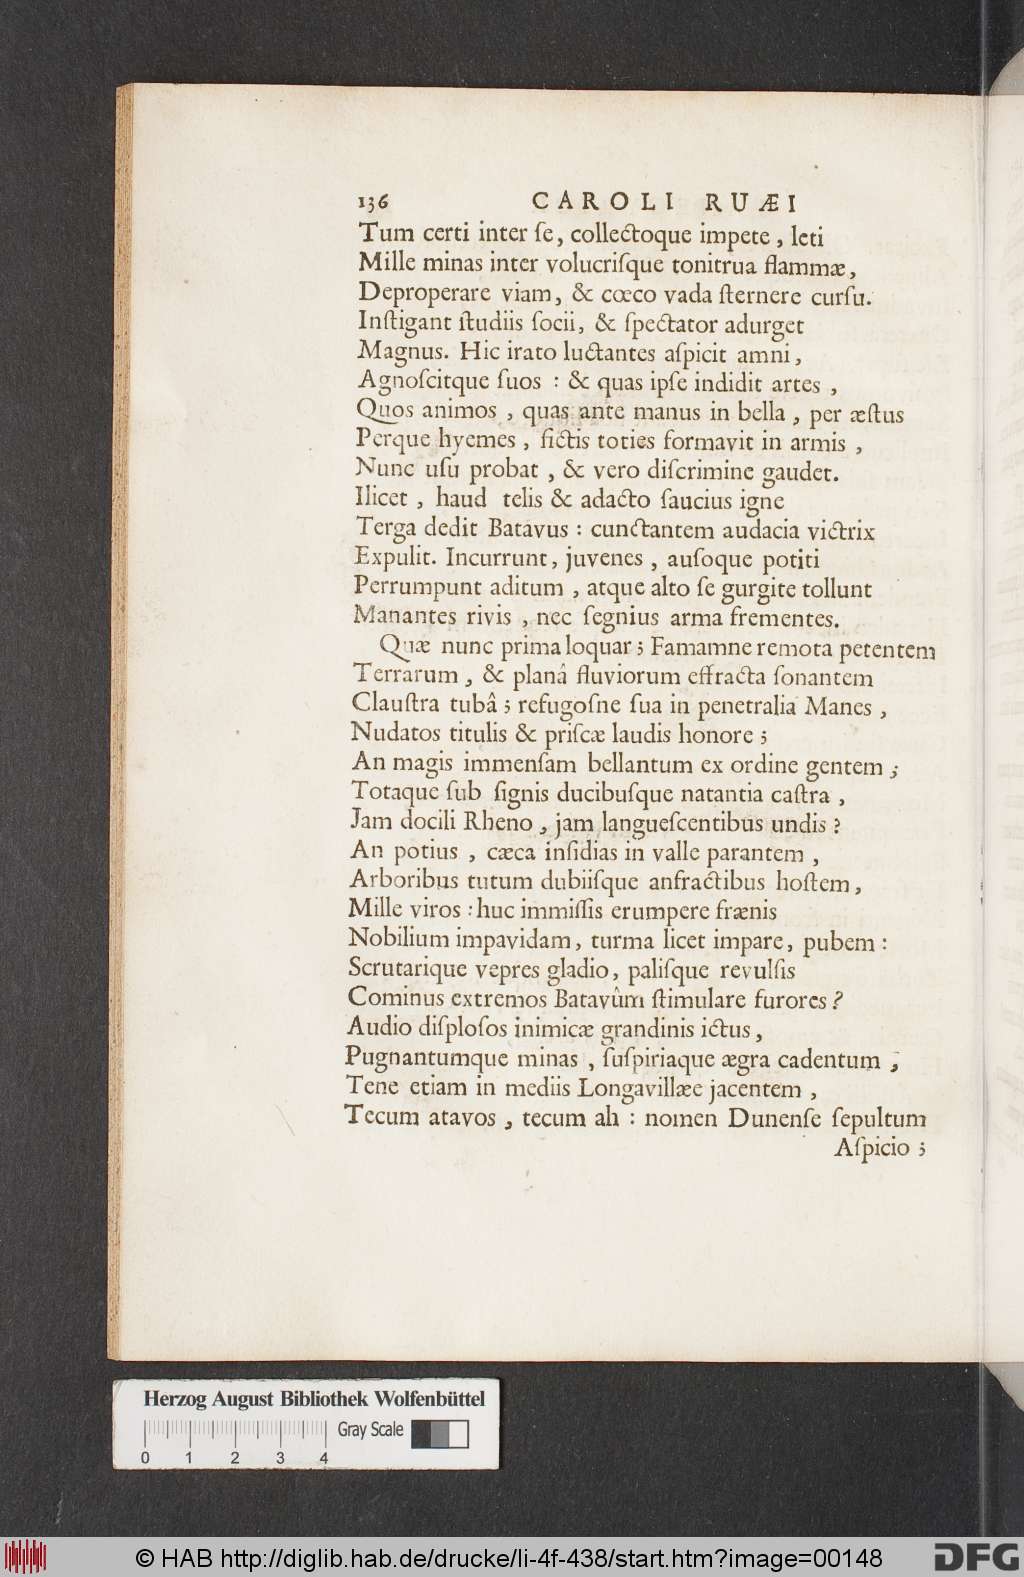 136 CAROLI RUÆI
Tum certi inter ſe, collectoque impete, leti
Mille minas inter volucriſque tonitrua flammæ,
Deproperare viam, & cœco vada ſternere curſu.
Inſtigant ſtudiis ſocii, & ſpectator adurget
Magnus. Hic irato luctantes aſpicit amni,
Agnoſcitque ſuos : & quas ipſe indidit artes,
Quos animos, quas ante manus in bella, per æſtus
Perque hyemes, fictis toties formavit in armis,
Nunc uſu probat, & vero diſcrimine gaudet.
Ilicet, haud telis & adacto ſaucius igne
Terga dedit Batavus : cunctantem audacia victrix
Expulit. Incurrunt, juvenes, auſoque potiti
Perrumpunt aditum, atque alto ſe gurgite tollunt
Manantes rivis, nec ſegnius arma frementes.
Quæ nunc prima loquar; Famamne remota petentem
Terrarum, & planâ fluviorum effracta ſonantem
Clauſtra tubâ; refugoſne ſua in penetralia Manes,
Nudatos titulis & priſcæ laudis honore;
An magis immenſam bellantum ex ordine gentem;
Totaque ſub ſignis ducibuſque natantia caſtra,
Jam docili Rheno, jam langueſcentibus undis?
An potius, cæca inſidias in valle parantem,
Arboribus tutum dubiiſque anfractibus hoſtem,
Mille viros : huc immiſſis erumpere frænis
Nobilium impavidam, turma licet impare, pubem :
Scrutarique vepres gladio, paliſque revulſis
Cominus extremos Batavûm ſtimulare furores?
Audio diſploſos inimicæ grandinis ictus,
Pugnantumque minas, ſuſpiriaque ægra cadentum;
Tene etiam in mediis Longavillæe jacentem,
Tecum atavos, tecum ah : nomen Dunenſe ſepultum
Aſpicio;
Herzog August Bibliothek Wolfenbüttel
Gray Scale
0 1 2 3 4
© HAB http://diglib.hab.de/drucke/li-4f-438/start.htm?image=00148
DFG